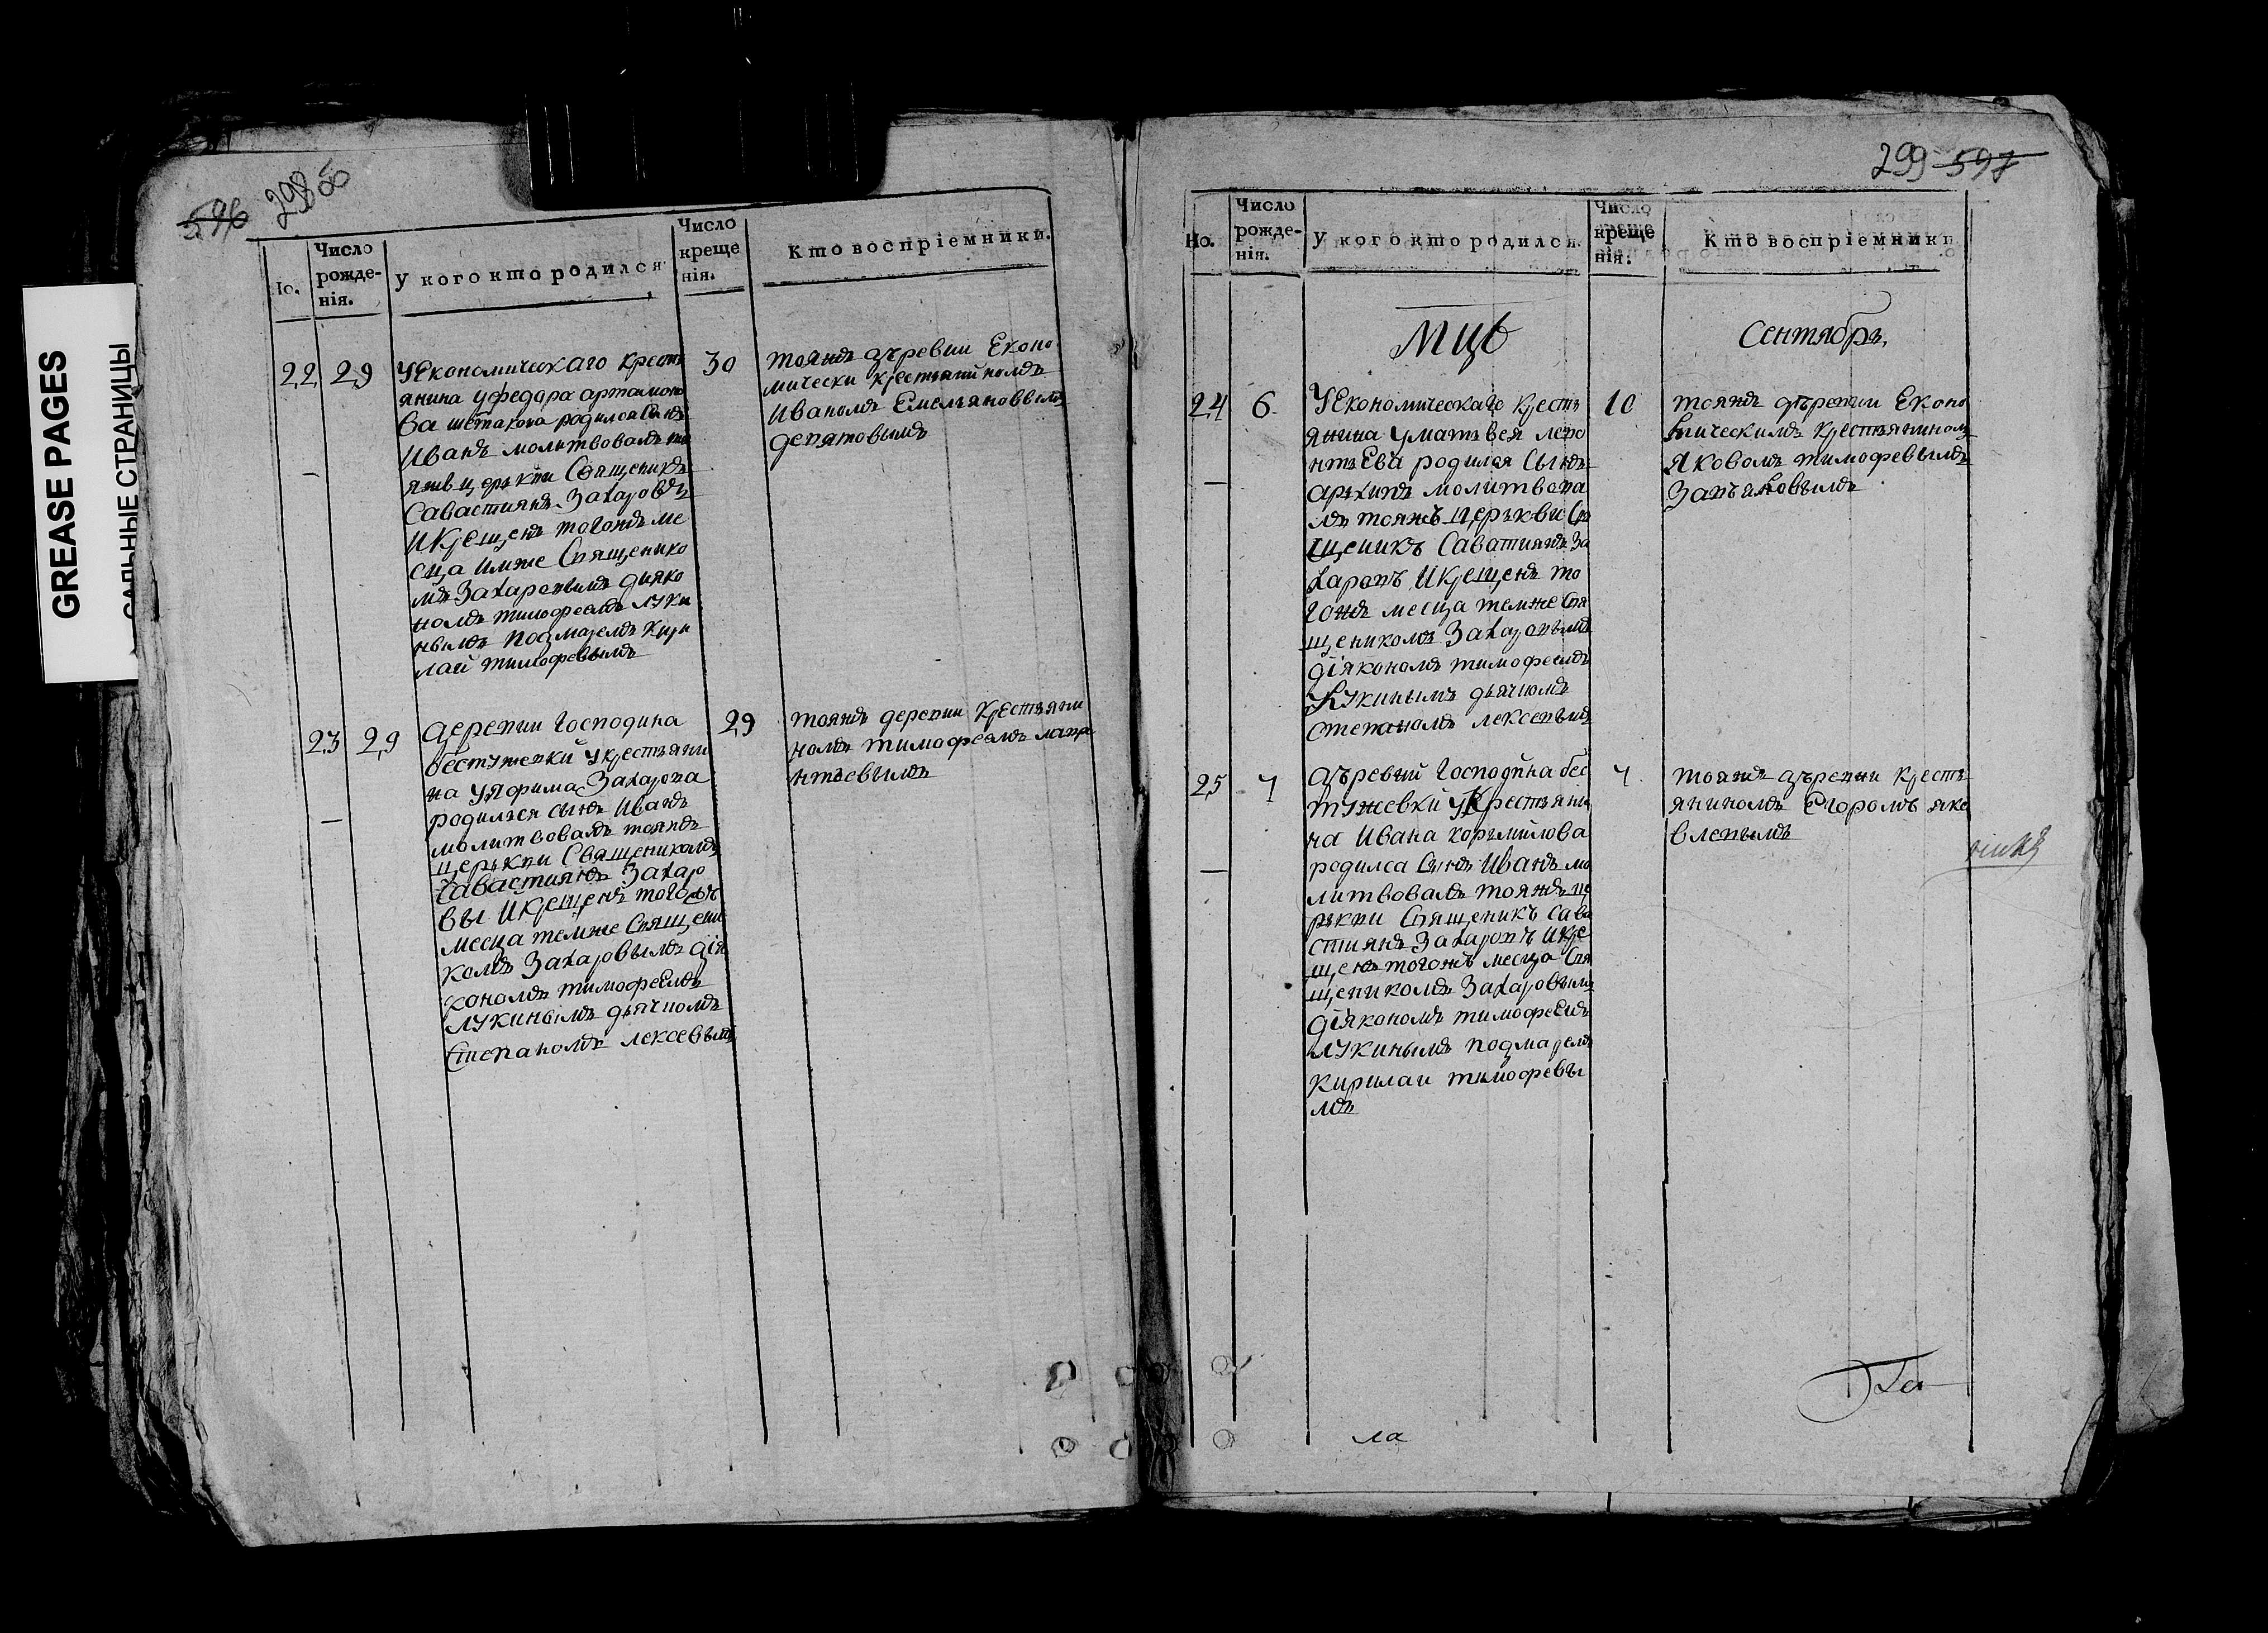 GREASE PAGES
САЛЬНЫЕ СТРАНИЦЫ
596 298 об
Но.
Число рожде-нія.
У кого кто родился
Число креще нія.
Кто воспріемники.
22
29
У Економическаго крестъ
янина у федора артамоно
ва шетакова родился сынъ
Иванъ молитвовалъ то
яжъ церькви Священикъ
Савастиянъ Захаровъ
И Крещенъ тогожъ ме
сца имже Священико
мъ Захаровымъ дияко
номъ тимофеемъ луки
нымъ подмаремъ Кири
лай тимофевымъ
30
тояжъ дъревни Еконо
мически крестьяниномъ
Иваномъ Емельяновымъ
девятовымъ
23
29
деревни Господина
бестужевки у крестьяни
на у Яфима Захарова
родился сынъ Иванъ
молитвовалъ тояжъ
церькви Священикомъ
Савастиянъ Захаро
въ И Крещенъ тогожъ
месца темже Священи
комъ Захаровымъ дія
кономъ тимофеемъ
лукинымъ дьячкомъ
Степаномъ лексевымъ
29
тояжъ деревни крестьяни
номъ тимофеемъ лавре
нтьевымъ
299 597
Но.
Число рожде-нія.
У кого кто родился.
Число креще нія.
Кто воспріемники
Мць
Сентябрь,
24
6
У Економическаго крестъ
янина у матъвея лево
нтьева родился Сынъ
архипъ молитвова
лъ тояжъ церькви Свя
щеникъ Саватиянъ За
харовъ И Крещенъ то
гожъ месца темже Свя
щеникомъ Захаровымъ
діякономъ тимофеемъ
Лукинымъ дьячкомъ
степаномъ лексевымъ
10
тояжъ дъревни Еконо
мическимъ крестьяниномъ
Яковомъ тимофевымъ
25
7
дъревни Господина бес
тужевки у Крестьяни
на Ивана корънилова
родилса Сынъ Иванъ мо
литвовалъ тояжъ це
рькви Священикъ Сава
стиянъ Захаровъ И Кре
щенъ тогожъ месца Свя
щеникомъ Захаровымъ
діякономъ тимофеемъ
лукинымъ подмаремъ
Кирилаи тимофевы
мъ
7
тояжъ дъревни крестъ
яниномъ Егоромъ яко
влевымъ
ла